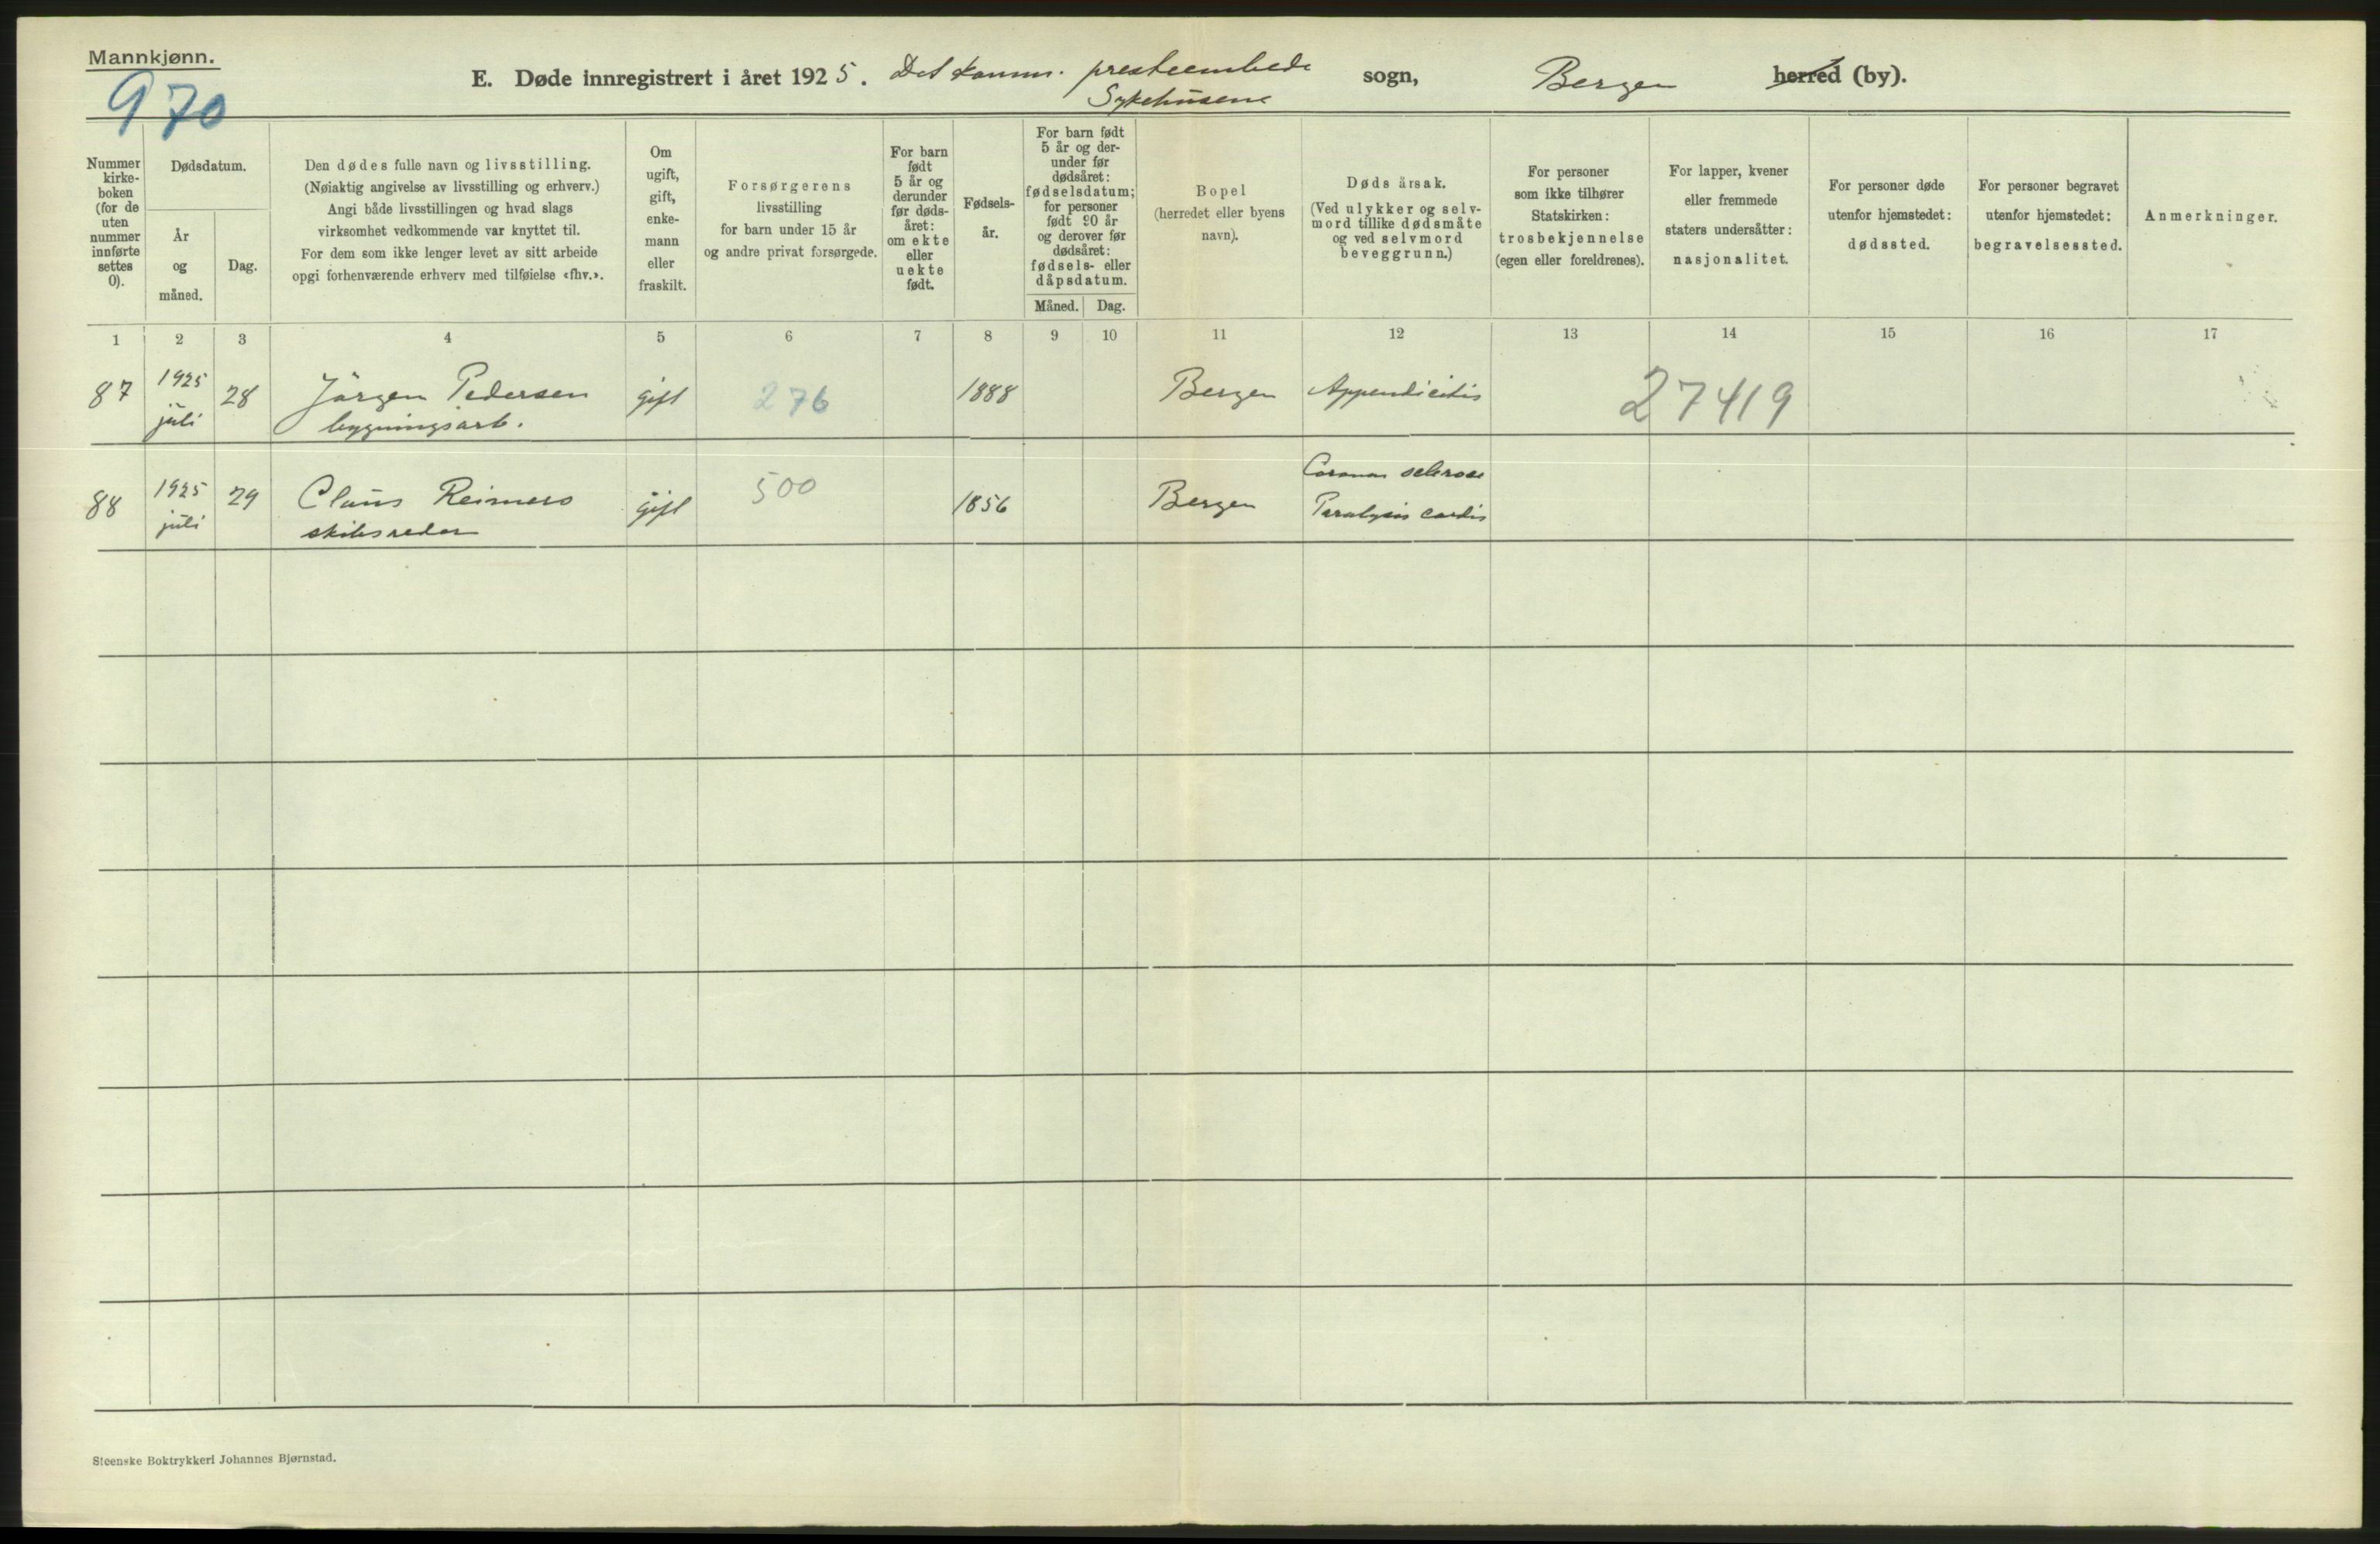 Mannkjønn.
970
E. Døde innregistrert i året 1925. Det komm. presteembede sogn, Bergen herred (by).
Sykehusene
Nummer kirke-boken (for de uten nummer innførte settes 0).
Dødsdatum.
År og måned.
Dag.
Den dødes fulle navn og livsstilling.
(Nøiaktig angivelse av livsstilling og erhverv.)
Angi både livsstillingen og hvad slags
virksomhet vedkommende var knyttet til.
For dem som ikke lenger levet av sitt arbeide
opgi forhenværende erhverv med tilføielse «fhv.».
Om
ugift,
gift,
enke-
mann
eller
fraskilt.
Forsørgerens
livsstilling
for barn under 15 år
og andre privat forsørgede.
For barn
født
5 år og
derunder
før døds-
året:
om ekte
eller
uekte
født.
Fødsels-
år.
For barn født
5 år og der-
under før
dødsåret:
fødselsdatum;
for personer
født 90 år
og derover før
dødsåret:
fødsels- eller
dåpsdatum.
Måned. Dag.
Bopel
(herredet eller byens
navn).
Dødsårsak.
(Ved ulykker og selv-
mord tillike dødsmåte
og ved selvmord
beveggrunn.)
For personer
som ikke tilhører
Statskirken:
trosbekjennelse
(egen eller foreldrenes).
For lapper, kvener
eller fremmede
staters undersåtter:
nasjonalitet.
For personer døde
utenfor hjemstedet:
dødssted.
For personer begravet
utenfor hjemstedet:
begravelsessted.
Anmerkninger.
1 2 3 4 5 6 7 8 9 10 11 12 13 14 15 16 17
87 1925 juli 28 Jörgen Pedersen gift 276 1888 Bergen Appendicitis 27419
bygningsarb.
88 1925 juli 29 Claus Reimers gift 500 1856 Bergen Coronar sclerose
skibsreder Paralysis cordis
Steenske Boktrykkeri Johannes Bjørnstad.